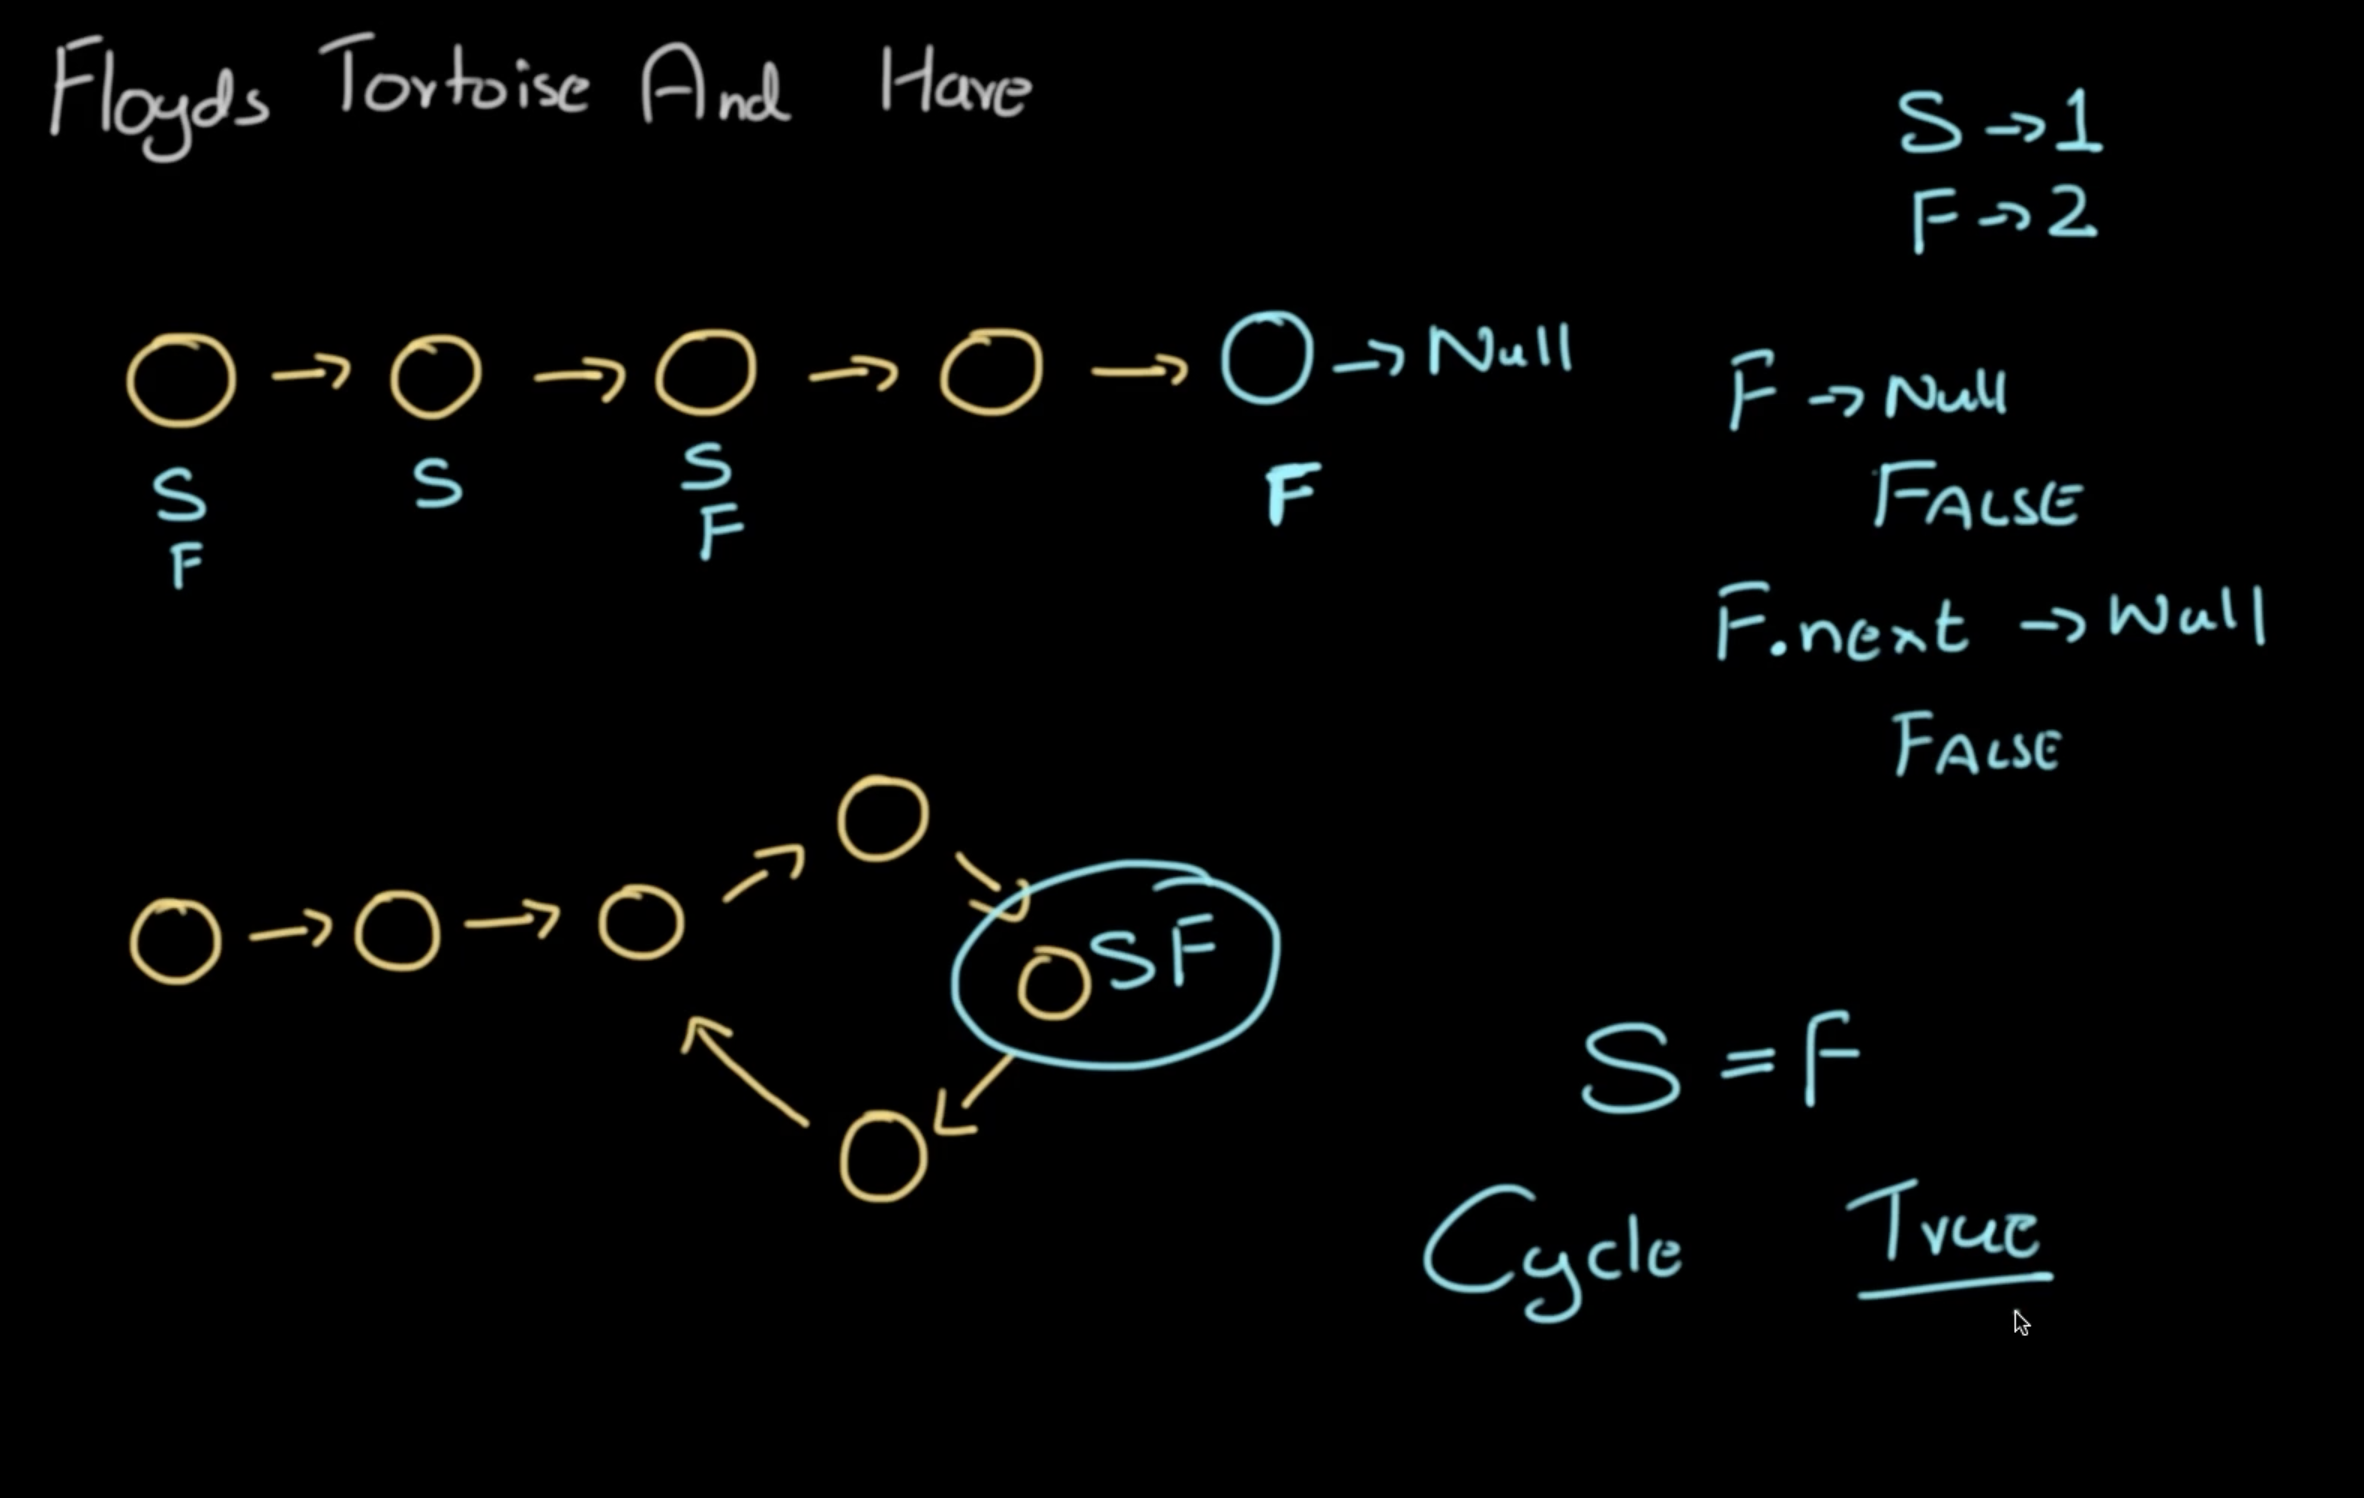 Floyds Tortoise And Hare
S → 1
F → 2
→ Null
S S S F
F F
F → Null
FALSE
F.next → Null
FALSE
SF
S = F
Cycle True